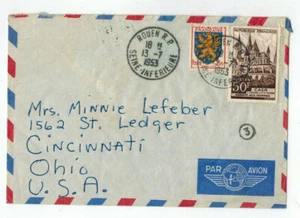 ROUEN R.P.
18 H
13 - 7
1953
SEINE-INFERIEURE
1953
50F
CAEN
Mrs. Minnie Lefeber
1562 St. Ledger
Cincinnati
Ohio
U.S.A.
3
PAR AVION